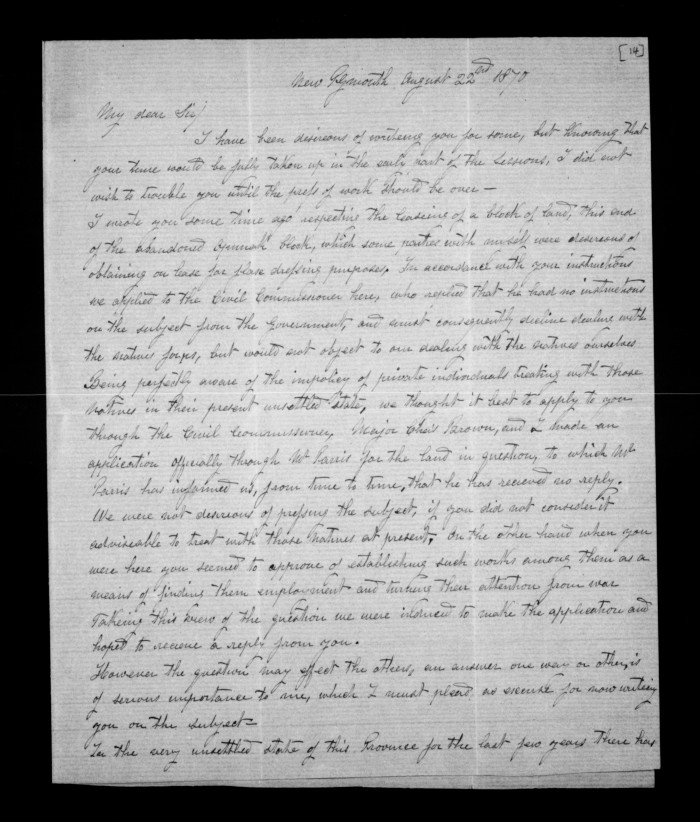 [14]
New Plymouth August 22nd 1870
My dear Sir/
I have been desireous of writeing you for some, but knowing that
your time would be fully taken up in the early part of the Sessions, I did not
wish to trouble you until the press of work should be once —
I wrote you some time ago respecting the leaseing of a block of land, this end
of the abandoned block, which some parties with myself were desireous of
obtaining on lease for flax dressing purposes. In accordance with your instructions
we applied to the Civil Commissioner here, who replied that he had no instructions
on the subject from the Government, and must consequently decline dealing with
the natives for us, but would not object to our dealing with the natives ourselves
Being perfectly aware of the impolicy of private individuals treating with those
natives in their present unsettled state, we thought it best to apply to you
through the Civil Commissioner, Major Chas Brown, and I made an
application officially through Mr Parris for the land in question, to which Mr
Parris has informed us, from time to time, that he has recieved no reply.
We were not desireous of pressing the subject, if you did not consider it
adviseable to treat with those natives at present, on the other hand when you
were here you seemed to approve of establishing such works among them as a
means of finding them employment and turning their attention from war
Takeing this view of the question we were induced to make the application and
hoped to receive a reply from you.
However the question may effect the others, an answer one way or other, is
of serious importance to me, which I must plead as excuse for now writing
you on the subject —
In the very unsettled state of this Province for the last few years there has